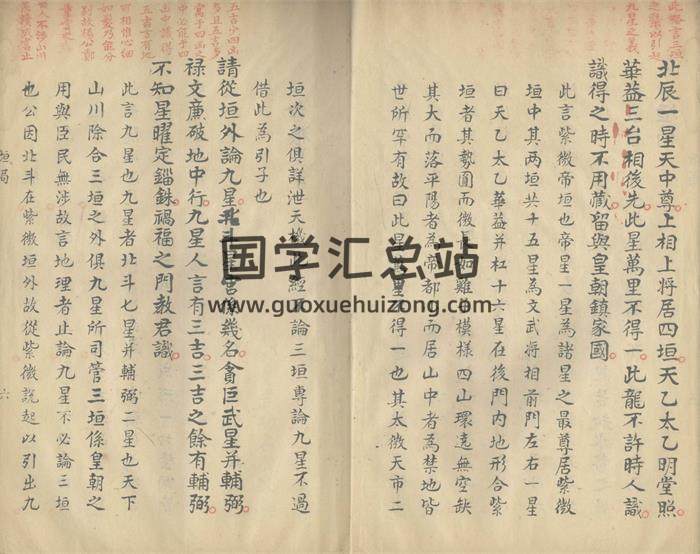 此畧言三垣
九星之義
北辰一星天中尊上相上將居四垣天乙太乙明堂照
華盖三台相後先此星萬里不得一此龍不許時人識
識得之時不用藏留與皇朝鎮家國
此言紫微帝垣也帝星一星為諸星之最尊居紫微
垣中其兩垣共十五星為文武將相前門左右一星
曰天乙太乙華盖并杠十六星在後門內地形合紫
垣者其勢圓而微長如雞卵模樣四山環遶無空缺
其大而落平陽者為帝都小而居山中者為禁地皆
世所罕有故曰此星萬里不得一也其太微天市二
垣次之俱詳泄天機
經
論三垣專論九星不過
借此為引子也
請從垣外論九星北斗星宮係幾名貪巨武星并輔弼
祿文廉破地中行九星人言有三吉三吉之餘有輔弼
不知星曜定錙銖禍福之門教君識
此言九星也九星者北斗七星并輔弼二星也天下
山川除合三垣之外俱九星所司管三垣係皇朝之
用與臣民無涉故言地理者止論九星不必論三垣
也公因北斗在紫微垣外故從紫微說起以引出九
垣局
六
国学汇总站
www.guoxuehuizong.com